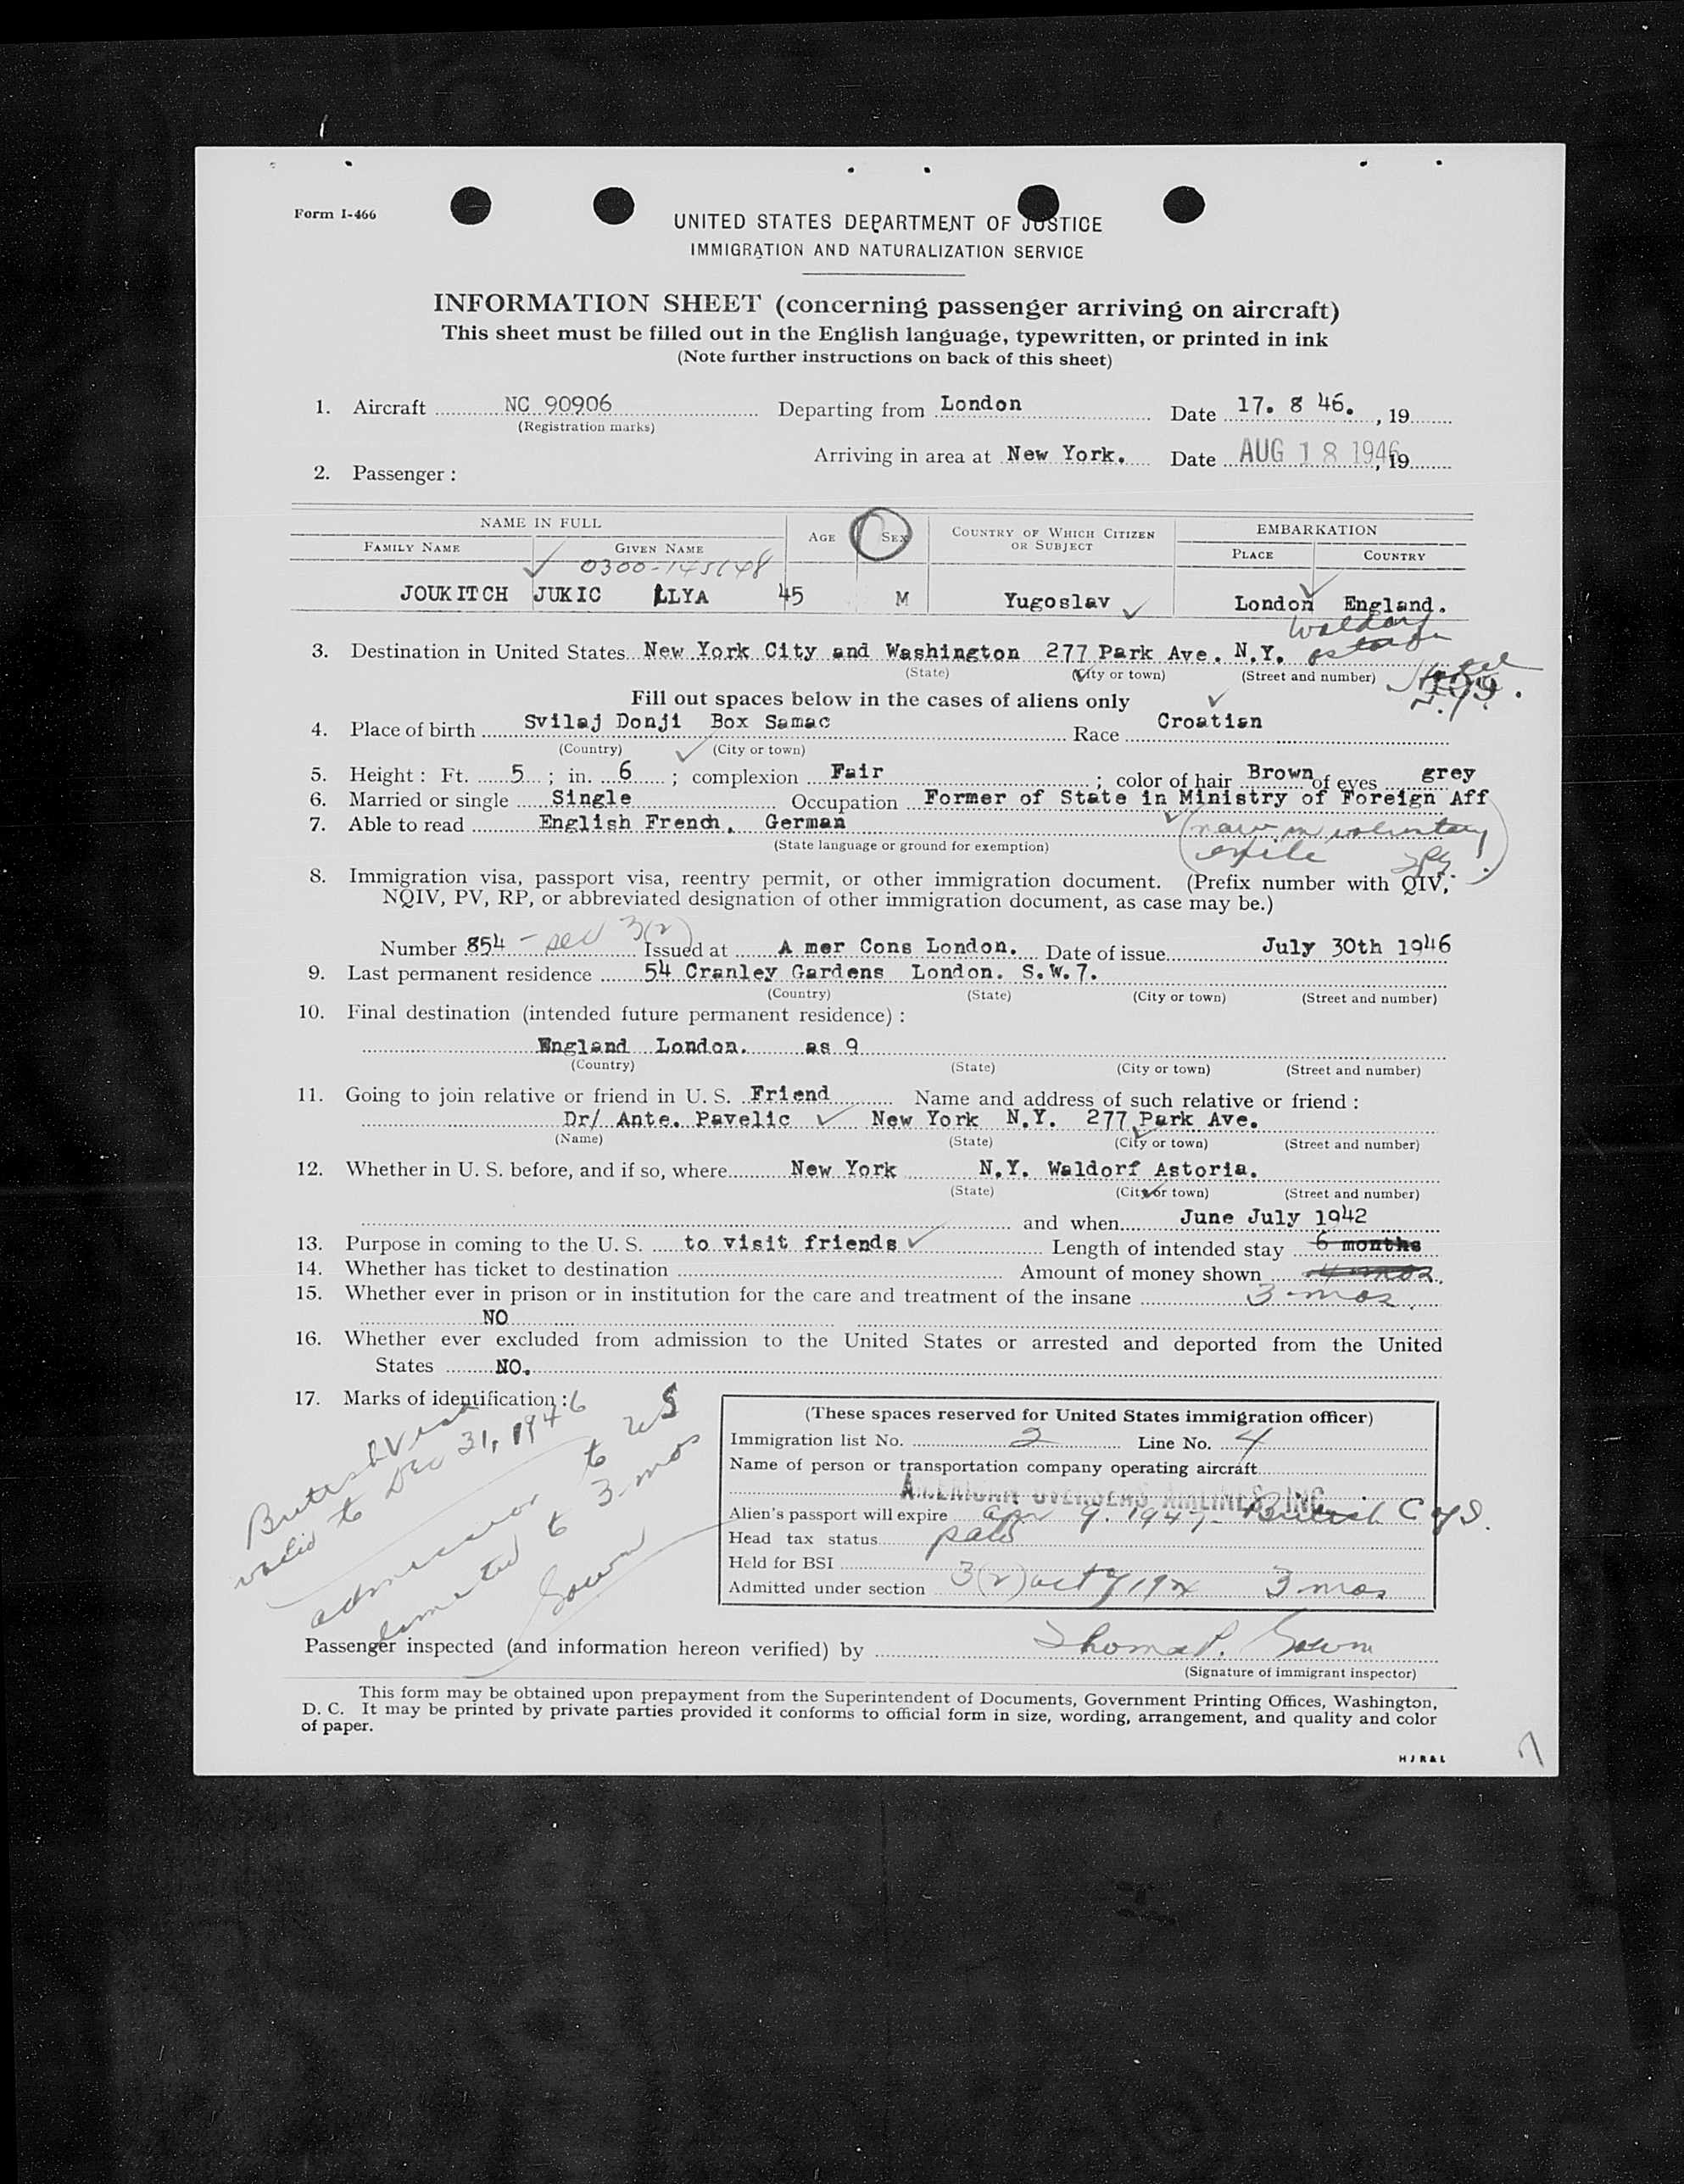 Form I-466
UNITED STATES DEPARTMENT OF JUSTICE
IMMIGRATION AND NATURALIZATION SERVICE
INFORMATION SHEET (concerning passenger arriving on aircraft)
This sheet must be filled out in the English language, typewritten, or printed in ink
(Note further instructions on back of this sheet)
1. Aircraft NC 90906 Departing from London Date 17. 8 46. , 19
(Registration marks)
Arriving in area at New York. Date AUG 18 1946, 19
2. Passenger :
NAME IN FULL AGE SEX COUNTRY OF WHICH CITIZEN OR SUBJECT EMBARKATION
FAMILY NAME GIVEN NAME PLACE COUNTRY
0300-145648
JOUKITCH JUKIC LLYA 45 M Yugoslav London England.
Waldorf
3. Destination in United States New York City and Washington 277 Park Ave. N.Y. Astoria
(State) (City or town) (Street and number) Hotel
N.Y.
Fill out spaces below in the cases of aliens only
4. Place of birth Svilaj Donji Box Samac Race Croatian
(Country) (City or town)
5. Height : Ft. 5 ; in. 6 ; complexion Fair ; color of hair Brown of eyes grey
6. Married or single Single Occupation Former of State in Ministry of Foreign Aff
7. Able to read English French, German (now in voluntary
(State language or ground for exemption) exile
8. Immigration visa, passport visa, reentry permit, or other immigration document. (Prefix number with QIV,
NQIV, PV, RP, or abbreviated designation of other immigration document, as case may be.)
Number 854 - sec 3(2) Issued at A mer Cons London. Date of issue July 30th 1946
9. Last permanent residence 54 Cranley Gardens London. S.W.7.
(Country) (State) (City or town) (Street and number)
10. Final destination (intended future permanent residence) :
England London. as 9
(Country) (State) (City or town) (Street and number)
11. Going to join relative or friend in U. S. Friend Name and address of such relative or friend :
Dr/ Ante. Pavelic New York N.Y. 277 Park Ave.
(Name) (State) (City or town) (Street and number)
12. Whether in U. S. before, and if so, where New York N.Y. Waldorf Astoria.
(State) (City or town) (Street and number)
and when June July 1942
13. Purpose in coming to the U. S. to visit friends Length of intended stay 6 months
14. Whether has ticket to destination Amount of money shown 4 mos.
15. Whether ever in prison or in institution for the care and treatment of the insane 3 mos.
NO
16. Whether ever excluded from admission to the United States or arrested and deported from the United
States NO.
17. Marks of identification :
British Visa
valid to Dec 31, 1946
admission to US
limited to 3 mos
(These spaces reserved for United States immigration officer)
Immigration list No. 2 Line No. 4
Name of person or transportation company operating aircraft
AMERICAN OVERSEAS AIRLINES, INC.
Alien's passport will expire Apr 9. 1947- British C of I.
Head tax status paid
Held for BSI
Admitted under section 3(2) act of 1924 3 mos
Passenger inspected (and information hereon verified) by Thomas P.
(Signature of immigrant inspector)
This form may be obtained upon prepayment from the Superintendent of Documents, Government Printing Offices, Washington,
D. C. It may be printed by private parties provided it conforms to official form in size, wording, arrangement, and quality and color
of paper.
HJR&L
7